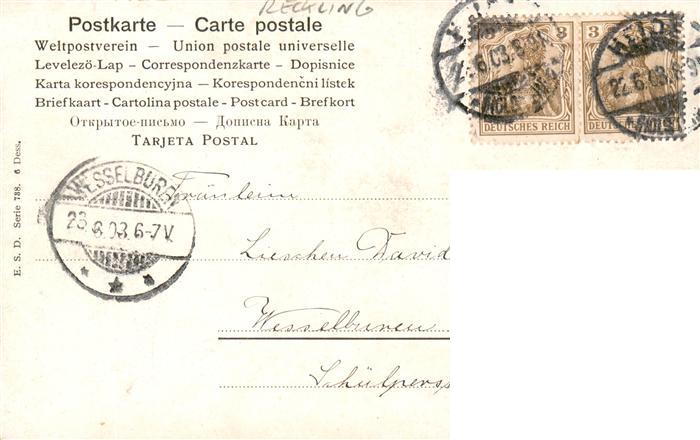 RECKLING
Postkarte – Carte postale
Weltpostverein – Union postale universelle
Levelező-Lap – Correspondenzkarte – Dopisnice
Karta korespondencyjna – Korespondenční lístek
Briefkaart - Cartolina postale - Post card - Brefkort
Открытое-письмо – Дописна Карта
TARJETA POSTAL
3 3
DEUTSCHES REICH
22.6.03.
(HOLST.)
WESSELBUREN
23.6.03.6-7V.
E. S. D. Serie 738. 6 Dess.
Fräulein
Lieschen David
Wesselburen